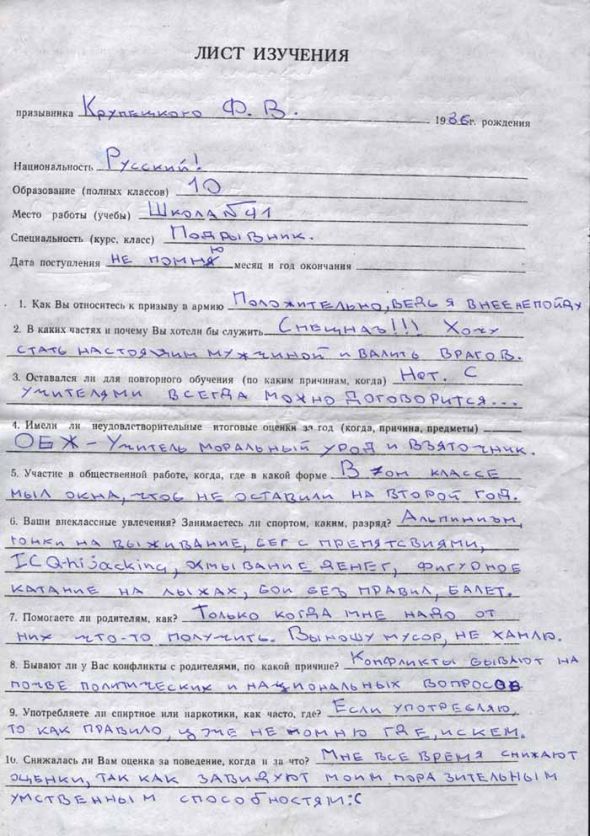 ЛИСТ ИЗУЧЕНИЯ
призывника Крупецкого Ф. В. 1986г. рождения
Национальность Русский!
Образование (полных классов) 10
Место работы (учебы) Школа №41
Специальность (курс, класс) Подрывник.
Дата поступления не помню месяц и год окончания
1. Как Вы относитесь к призыву в армию Положительно, ведь я в нее не пойду
2. В каких частях и почему Вы хотели бы служить Спецназ!!! Хочу
стать настоящим мужчиной и валить врагов.
3. Оставался ли для повторного обучения (по каким причинам, когда) Нет. С
учителями всегда можно договорится...
4. Имели ли неудовлетворительные итоговые оценки за год (когда, причина, предметы)
ОБЖ – Учитель моральный урод и взяточник.
5. Участие в общественной работе, когда, где в какой форме В 7ом классе
мыл окна, чтоб не оставили на второй год.
6. Ваши внеклассные увлечения? Занимаетесь ли спортом, каким, разряд? Альпинизм,
гонки на выживание, бег с препятсвиями,
ICQ-hijacking, отмывание денег, фигурное
катание на лыжах, бои без правил, балет.
7. Помогаете ли родителям, как? Только когда мне надо от
них что-то получить. Выношу мусор, не хамлю.
8. Бывают ли у Вас конфликты с родителями, по какой причине? Конфликты бывают на
почве политических и национальных вопросов
9. Употребляете ли спиртное или наркотики, как часто, где? Если употребляю,
то как правило, уже не помню где, искем.
10. Снижалась ли Вам оценка за поведение, когда и за что? Мне все время снижают
оценки, так как завидуют моим поразительным
умственным способностям:(